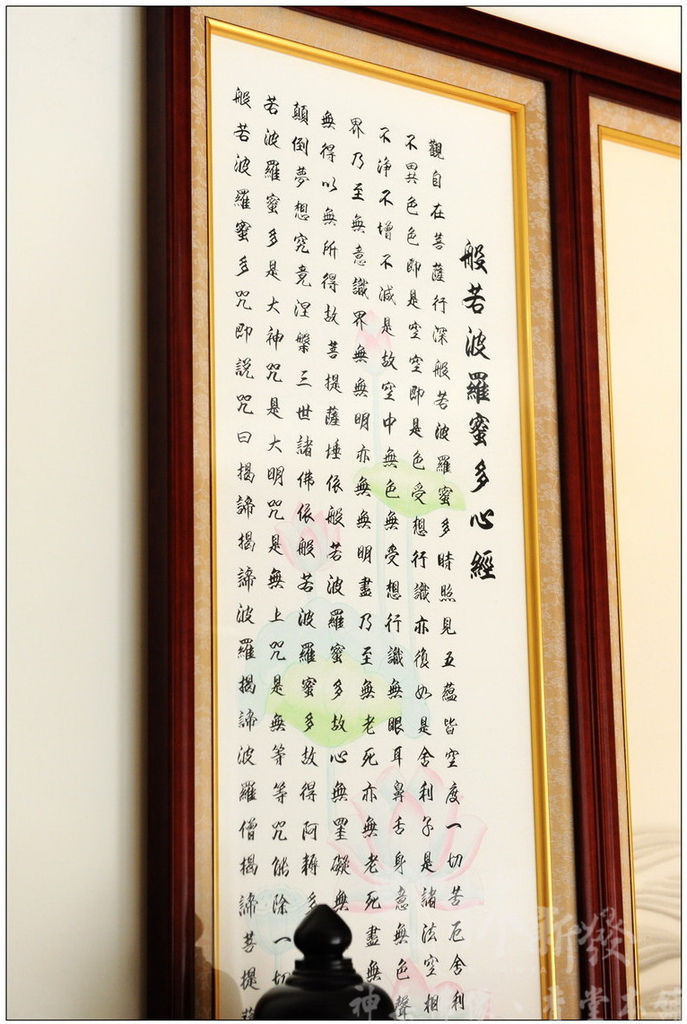 般若波羅蜜多心經
觀自在菩薩行深般若波羅蜜多時照見五蘊皆空度一切苦厄舍利
不異色色即是空空即是色受想行識亦復如是舍利子是諸法空相
不淨不增不減是故空中無色無受想行識無眼耳鼻舌身意無色聲
界乃至無意識界無無明亦無無明盡乃至無老死亦無老死盡無
無得以無所得故菩提薩埵依般若波羅蜜多故心無罣礙無
顛倒夢想究竟涅槃三世諸佛依般若波羅蜜多故得阿耨多
若波羅蜜多是大神咒是大明咒是無上咒是無等等咒能除一切
般若波羅蜜多咒即說咒曰揭諦揭諦波羅揭諦波羅僧揭諦菩提薩
新發